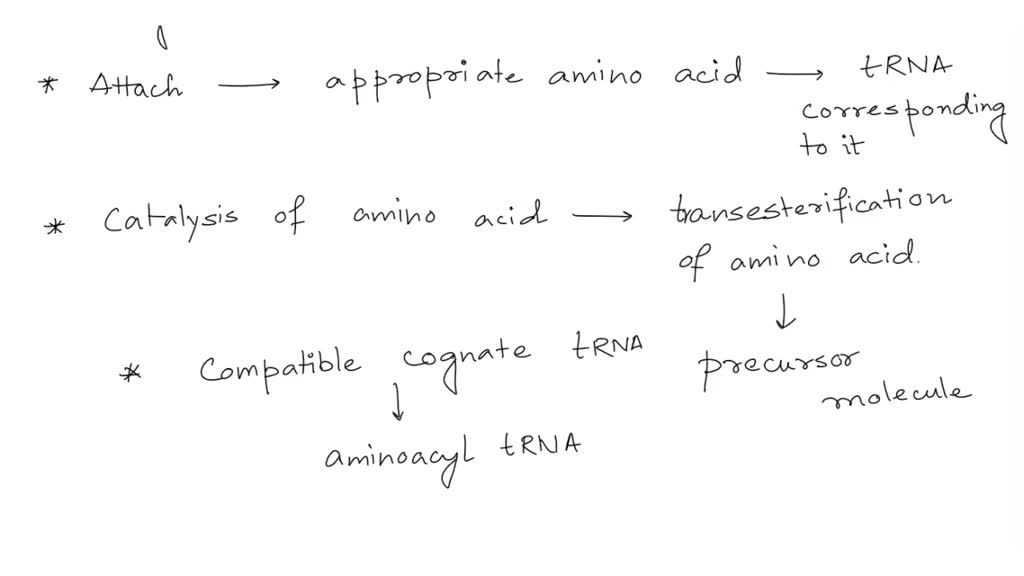 * Attach → appropriate amino acid → tRNA
corresponding
to it
* Catalysis of amino acid → transesterification
of amino acid.
↓
* Compatible cognate tRNA
precursor
molecule
↓
aminoacyl tRNA